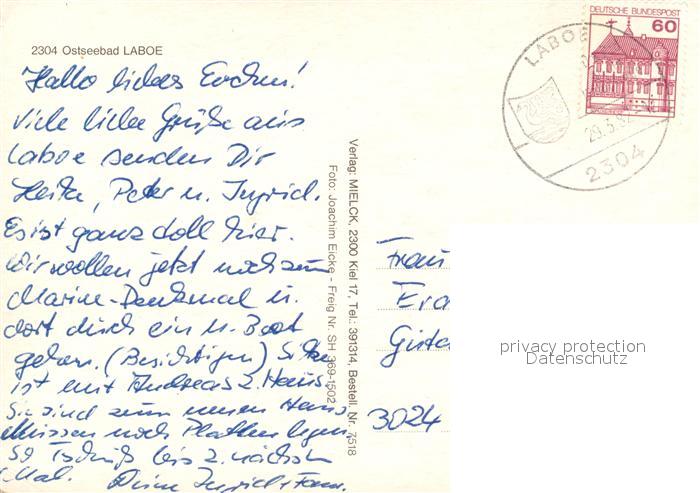 2304 Ostseebad LABOE
Hallo liebes Evchen!
Viele liebe Grüße aus
Laboe senden Dir
Heike, Peter u. Ingrid.
Es ist ganz doll hier.
Wir wollen jetzt noch zum
Marine-Denkmal u.
dort durch ein U. Boot
gehen. (Besichtigen)
ist mit Andreas z. Haus.
Sie sind zum neuen Haus
Müssen noch Platten legen.
So Tschüß bis z. nächsten
Mal. Deine Ingrid + Fam.
Verlag: MIELCK, 2300 Kiel 17, Tel.: 391314, Bestell. Nr. 7518
Foto: Joachim Eicke - Freig Nr. SH 369-1502
DEUTSCHE BUNDESPOST
60
LABOE
29.3.
2304
Frau
3024
privacy protection
Datenschutz